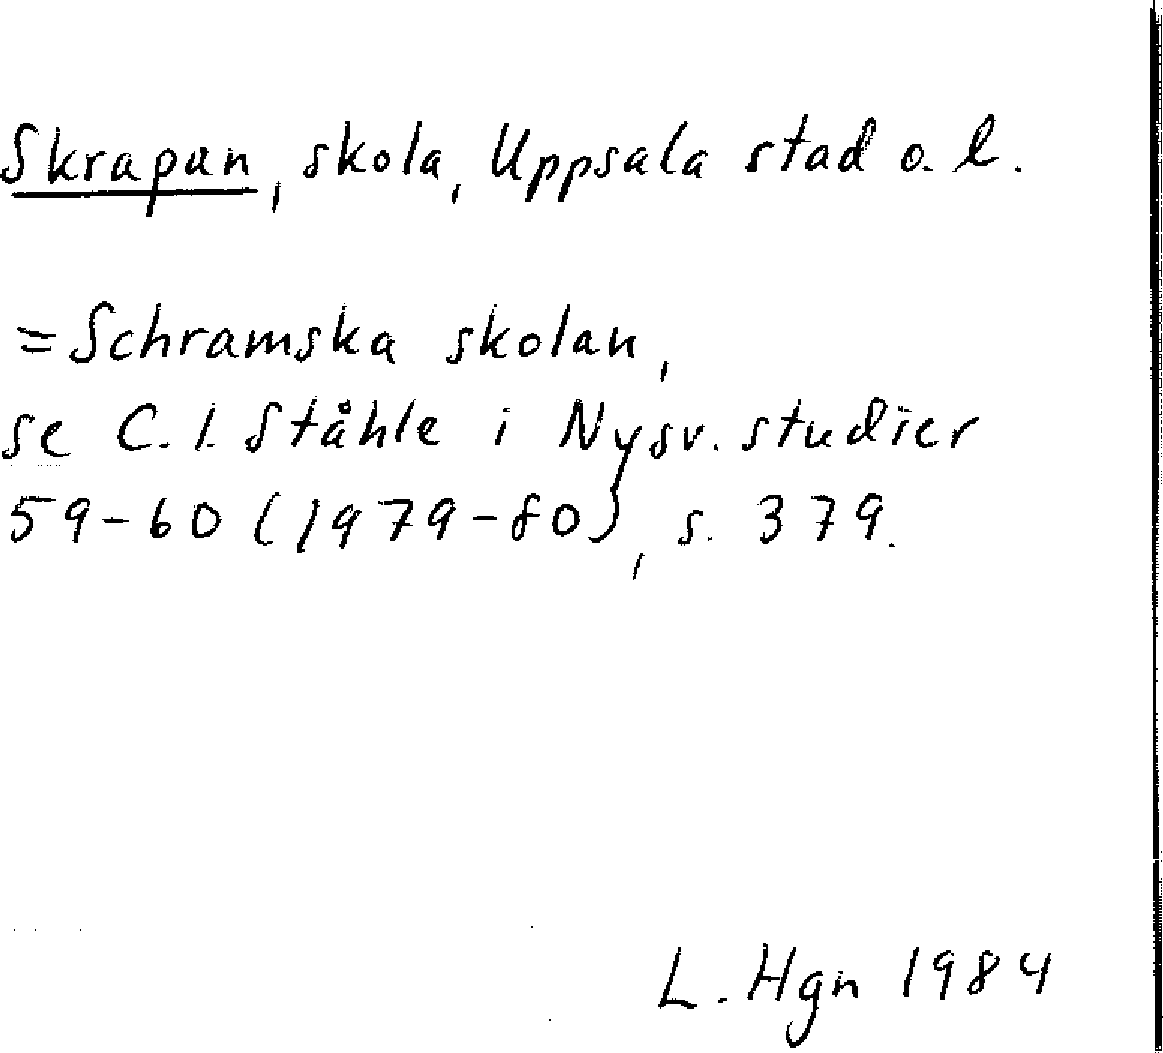 Skrapan, skola, Uppsala stad o. l.
= Schramska skolan,
se C. I. Ståhle i Nysv. studier
59-60 (1979-80), s. 379.
L. Hgn 1984